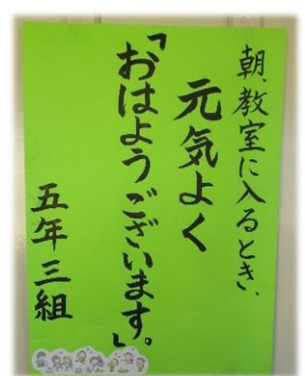 朝、教室に入るとき、
元気よく
「おはようございます。」
五年三組